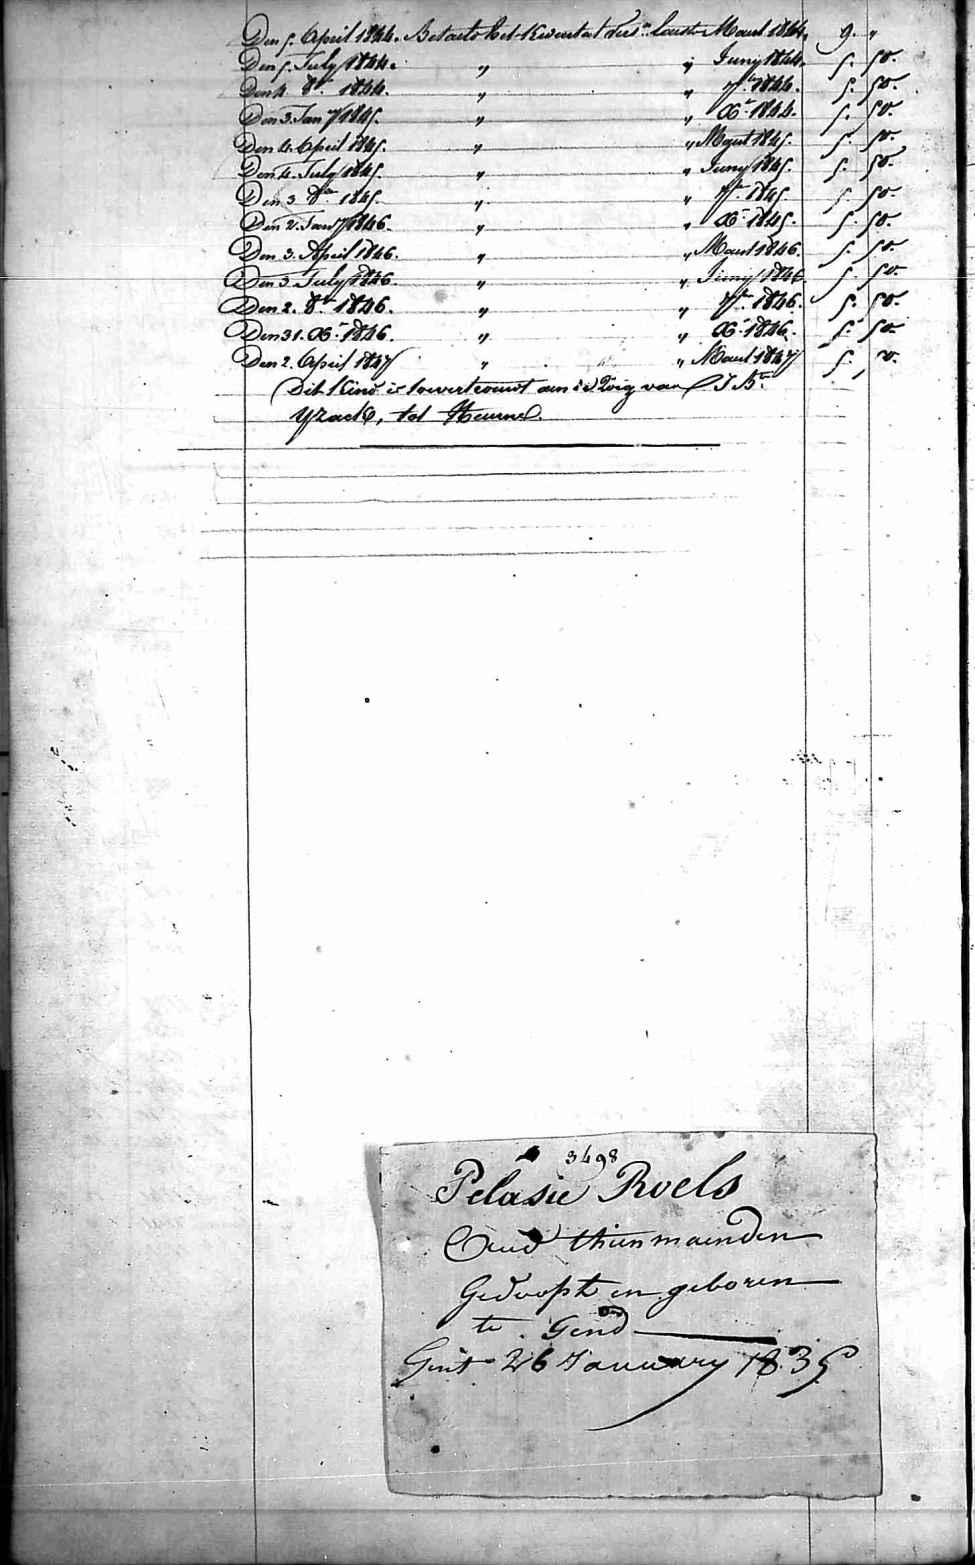 Den 5. April 1844. Betaald het Kwartaal Maart 1844. 9. "
Den 5. July 1844. " " Juny 1844. 5. 50.
Den 4. 8br 1844. " " 7br 1844. 5. 50.
Den 3. Jany 1845. " " Xbr 1844. 5. 50.
Den 4. April 1845. " " Maart 1845. 5. 50.
Den 4. July 1845. " " Juny 1845. 5. 50.
Den 3. 8br 1845. " " 7br 1845. 5. 50.
Den 2. Jany 1846. " " Xbr 1845. 5. 50.
Den 3. April 1846. " " Maart 1846. 5. 50.
Den 3. July 1846. " " Juny 1846. 5. 50.
Den 2. 8br 1846. " " 7br 1846. 5. 50.
Den 31. Xbr 1846. " " Xbr 1846. 5. 50.
Den 2. April 1847 " " Maart 1847 5.
Dit Kind is toevertrouwt aan de zorg van J. Bte
Yzack, tot Heurne.
3498
Pelasie Roels
Oud thien maenden
Gedoopt en geboren
te Gend
Gent 26 January 1835